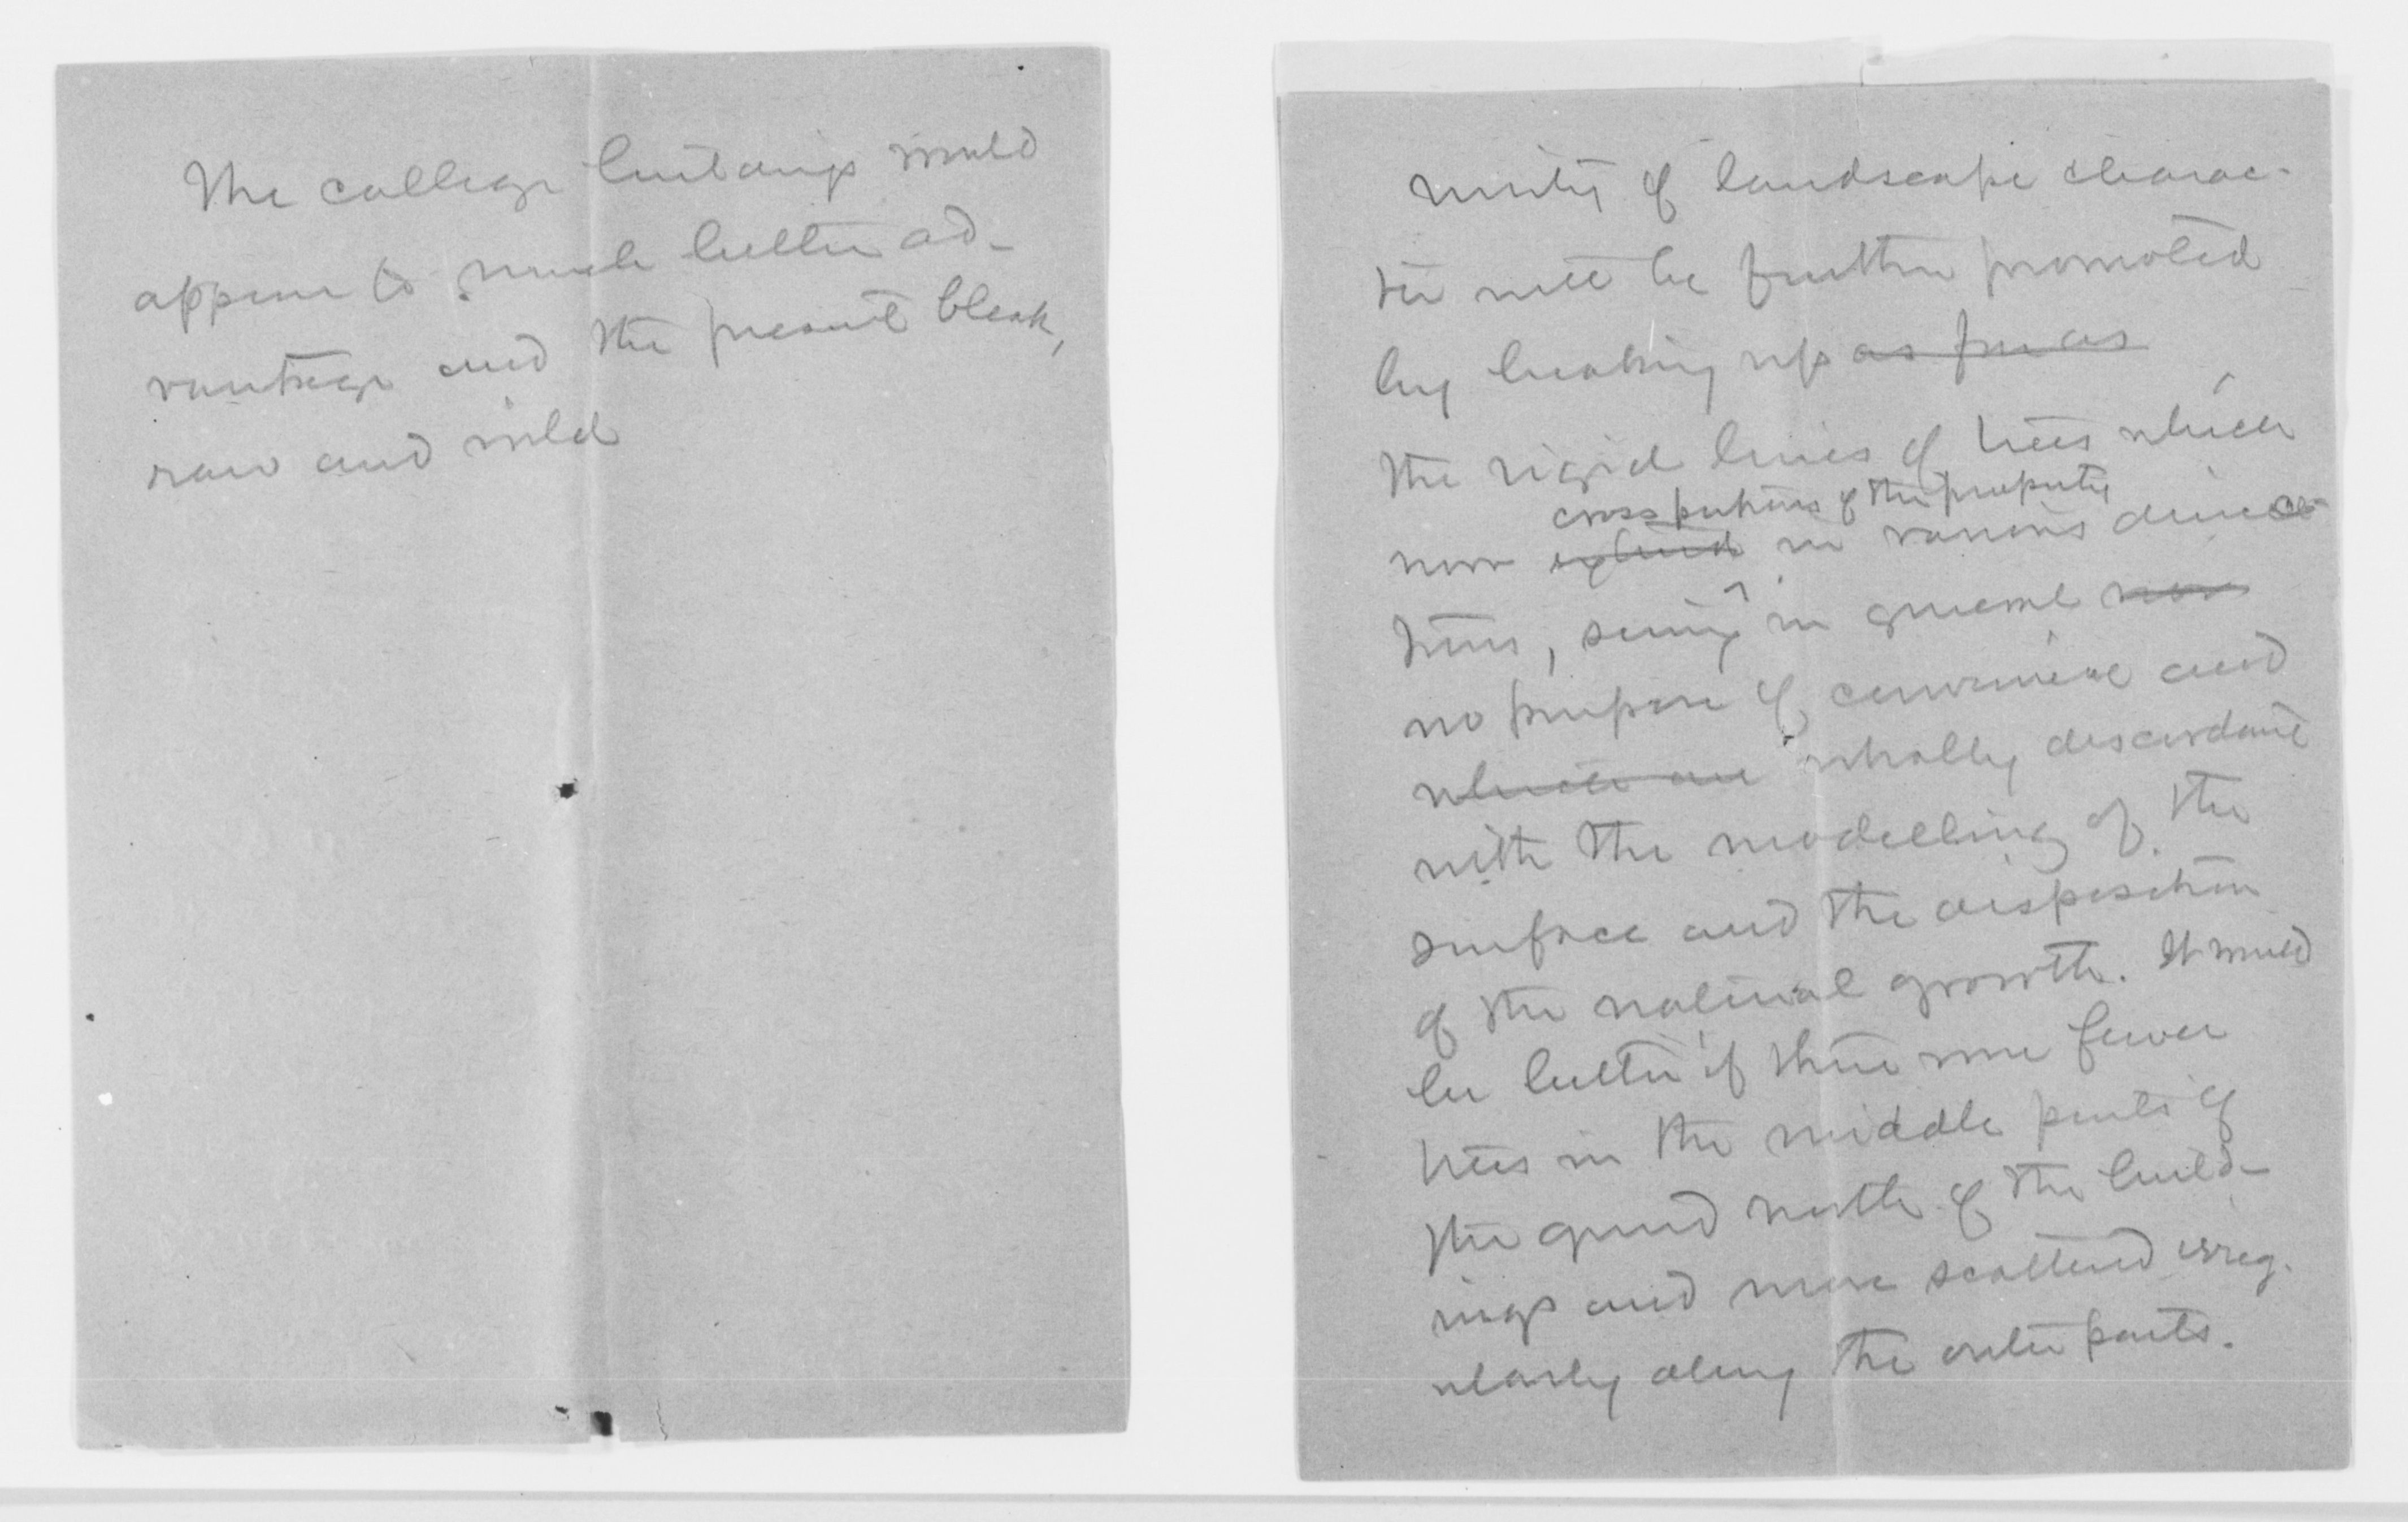 The college buildings would
appear to much better ad-
vantage and the present bleak,
raw and wild
unity of landscape charac-
ter will be further promoted
by breaking up as far as
the rigid lines of trees which
cross portions of the property
now extend in various direc-
tions, serving in general
no purpose of convenience and
which are wholly discordant
with the modelling of the
surface and the disposition
of the natural growth. It would
be better if there were fewer
trees in the middle parts of
the ground north of the build-
ings and more scattered irreg-
ularly along the outer parts.